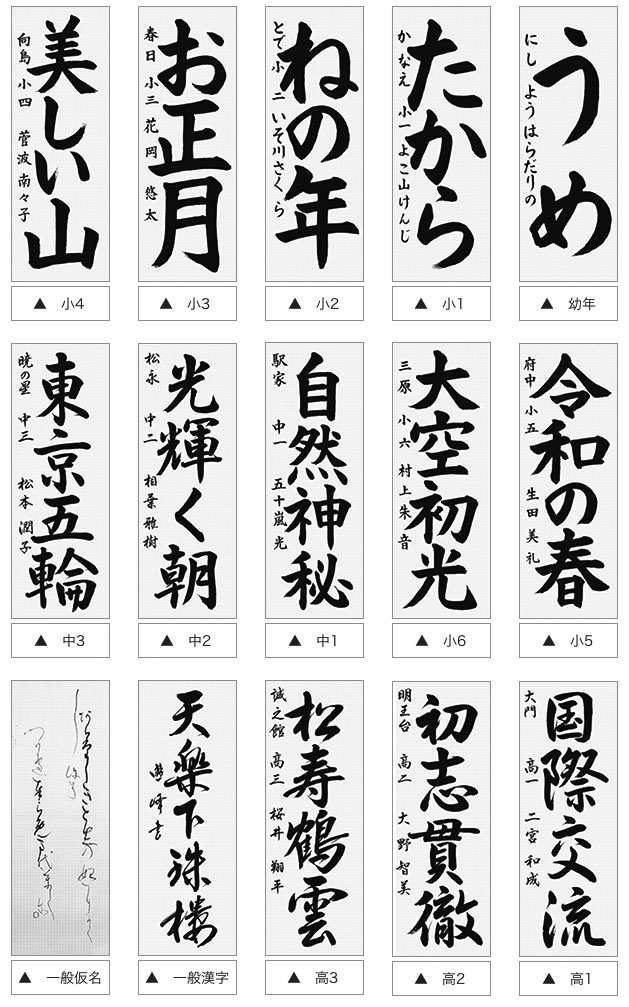 うめ
にし よう はらだりの
▲ 幼年
たから
かなえ 小一 よこ山けんじ
▲ 小1
ねの年
とて小 二 いそ川さくら
▲ 小2
お正月
春日 小三 花岡 悠太
▲ 小3
美しい山
向島 小四 菅波 南々子
▲ 小4
令和の春
府中 小五 生田 美礼
▲ 小5
大空初光
三原 小六 村上朱音
▲ 小6
自然神秘
駅家 中一 五十嵐 光
▲ 中1
光輝く朝
松永 中二 相葉雅樹
▲ 中2
東京五輪
暁の星 中三 松本 潤子
▲ 中3
国際交流
大門 高一 二宮 和成
▲ 高1
初志貫徹
明王台 高二 大野 智美
▲ 高2
松寿鶴雲
誠之館 高三 桜井 翔平
▲ 高3
天樂下珠楼
▲ 一般漢字
▲ 一般仮名